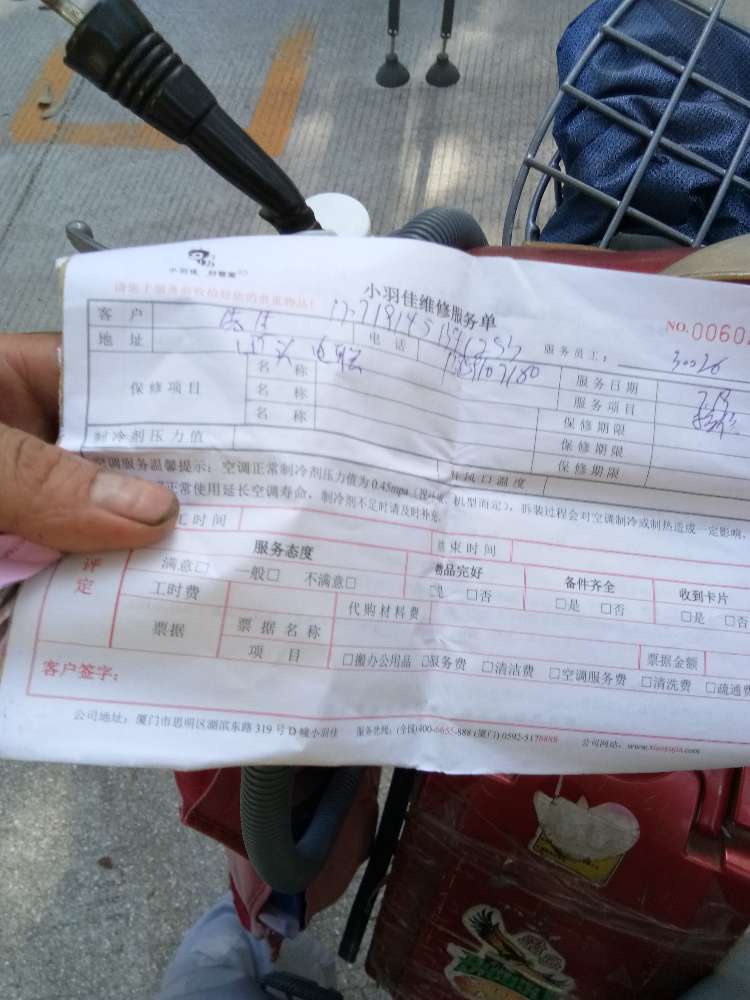 小羽佳 好管家
请您于服务前收拾好您的贵重物品!
小羽佳维修服务单
NO.0060
客 户
电 话
服务员工: 30026
地 址
服务日期
保修项目
名 称
服务项目
名 称
保修期限
名 称
保修期限
保修期限
制冷剂压力值
出风口温度
空调服务温馨提示:空调正常制冷剂压力值为0.45mpa(视环境、机型而定),拆装过程会对空调制冷或制热造成一定影响,
正常使用延长空调寿命,制冷剂不足时请及时补充。
工时间
束时间
评定
服务态度
物品完好
备件齐全
收到卡片
满意□ 一般□ 不满意□
是 □否
□是 □否
□是 □否
工时费
代购材料费
票据
票据名称
票据金额
项 目
□搬办公用品 □服务费 □清洁费 □空调服务费 □清洗费 □疏通费
客户签字:
公司地址:厦门市思明区湖滨东路319号D幢小羽佳 服务热线:(全国)400-6655-888 (厦门)0592-5176888 公司网站:www.xiaoyujia.com